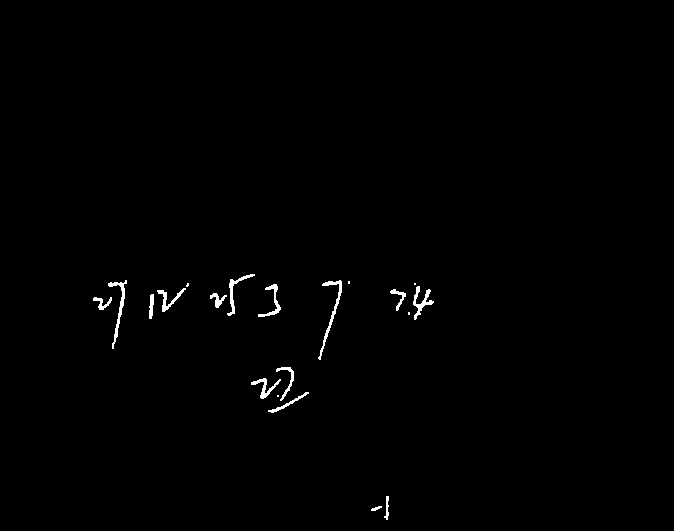 27 12 25 3 7 7.4
27
-1